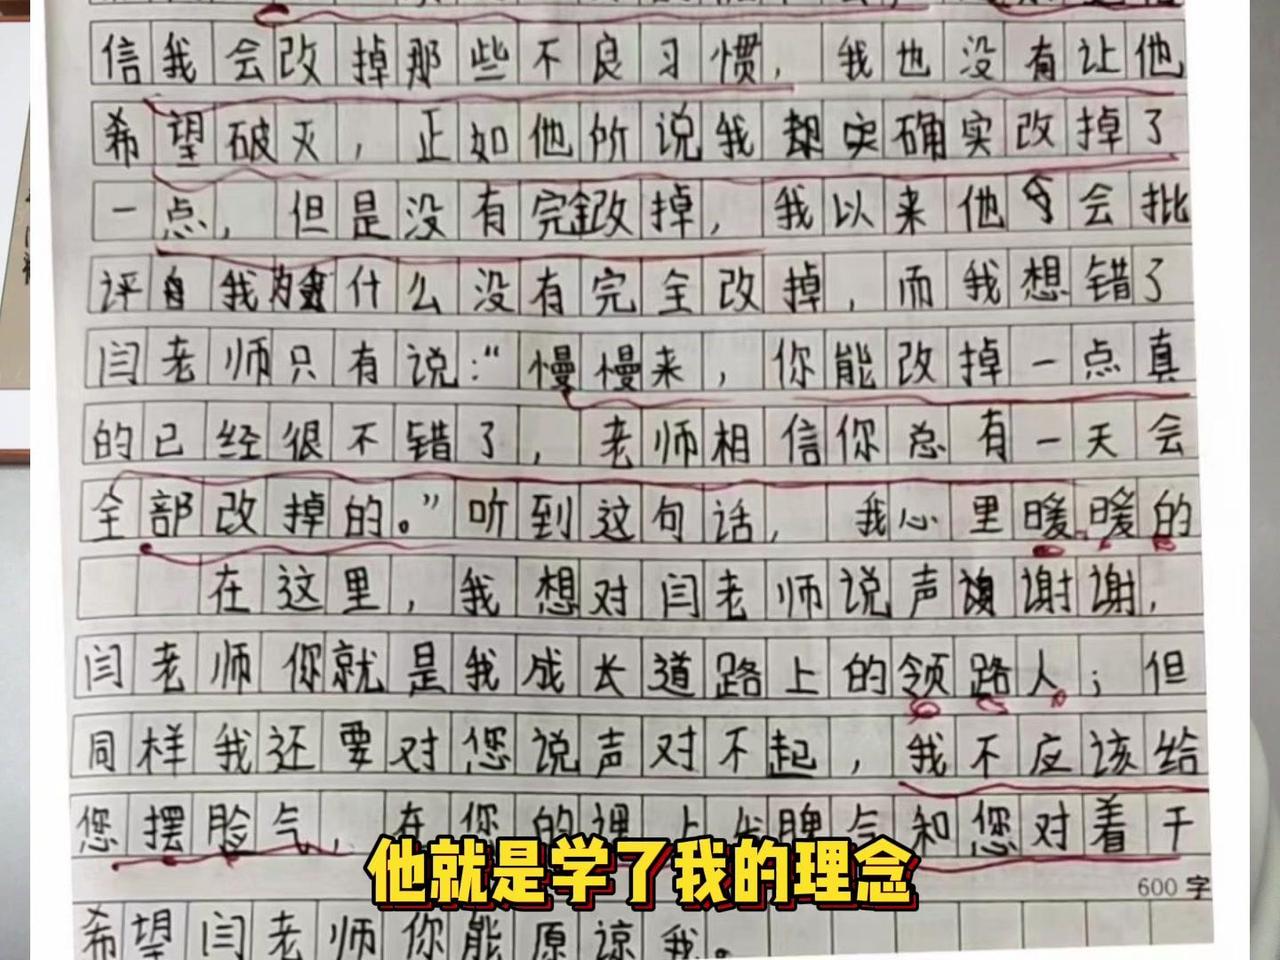 信我会改掉那些不良习惯，我也没有让他
希望破灭，正如他所说我确实改掉了
一点，但是没有完全改掉，我以来他会批
评我为什么没有完全改掉，而我想错了
闫老师只有说：“慢慢来，你能改掉一点真
的已经很不错了，老师相信你总有一天会
全部改掉的。”听到这句话，我心里暖暖的
在这里，我想对闫老师说声谢谢，
闫老师你就是我成长道路上的领路人；但
同样我还要对您说声对不起，我不应该给
您摆脸气，在您的课上发脾气和您对着干
他就是学了我的理念
600字
希望闫老师你能原谅我。